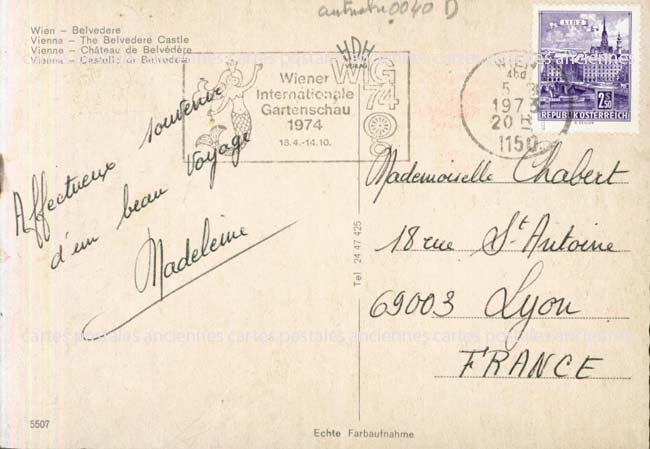 autriche 0040 D
Wien – Belvedere
Vienna – The Belvedere Castle
Vienne – Château de Belvédère
Vienna – Castello di Belvedere
HDH
WIG
74
Wiener
Internationale
Gartenschau
1974
18.4.-14.10.
5. 8
1973
20
1150
LINZ
2.50
REPUBLIK ÖSTERREICH
Affectueux souvenir
d'un beau voyage
Madeleine
Tel 24 47 425
Mademoiselle Chabert
18 rue St Antoine
69003 Lyon
FRANCE
cartes postales anciennes cartes postales anciennes cartes postales anciennes
5507
Echte Farbaufnahme